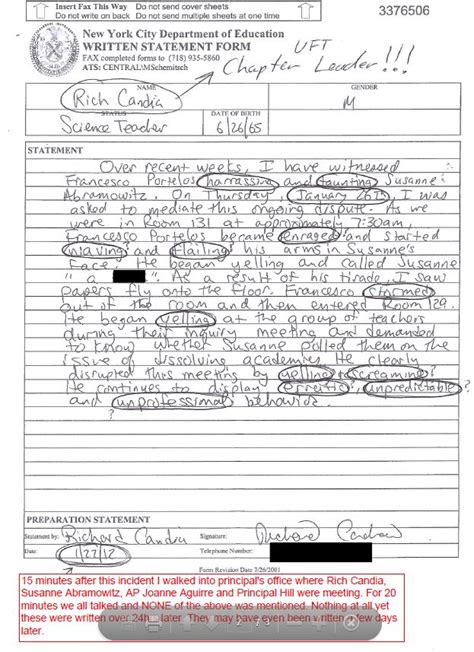 Insert Fax This Way    Do not send cover sheets
Do not write on back    Do not send multiple sheets at one time
3376506
New York City Department of Education
WRITTEN STATEMENT FORM
FAX completed forms to (718) 935-5860
ATS: CENTRAL\MSchemitsch
UFT
Chapter Leader!!!
NAME    GENDER
Rich Candia    M
STATUS    DATE OF BIRTH
Science Teacher    6/26/65
STATEMENT
Over recent weeks, I have witnessed
Francesco Portelos harrassing and taunting Susanne
Abramowitz. On Thursday, January 26th, I was
asked to mediate this ongoing dispute. As we
were in Room 131 at approximately 7:30am,
Francesco Portelos became enraged and started
waving and flailing his arms in Susanne's
face. He began yelling and called Susanne
"a". As a result of his tirade, I saw
papers fly onto the floor. Francesco stormed
out of the room and then entered Room 129.
He began yelling at the group of teachers
during their inquiry meeting and demanded
to know whether Susanne polled them on the
issue of dissolving academies. He clearly
disrupted this meeting by yelling + screaming?
He continues to display erreitic?, unpredictable?
and unprofessional behavior.
?
PREPARATION STATEMENT
Statement by: Richard Candia    Signature: Richard Candia
Date: 1/27/12    Telephone Number:
Form Revision Date 7/26/2001
15 minutes after this incident I walked into principal's office where Rich Candia,
Susanne Abramowitz, AP Joanne Aguirre and Principal Hill were meeting. For 20
minutes we all talked and NONE of the above was mentioned. Nothing at all yet
these were written over 24hr later. They may have even been written a few days
later.